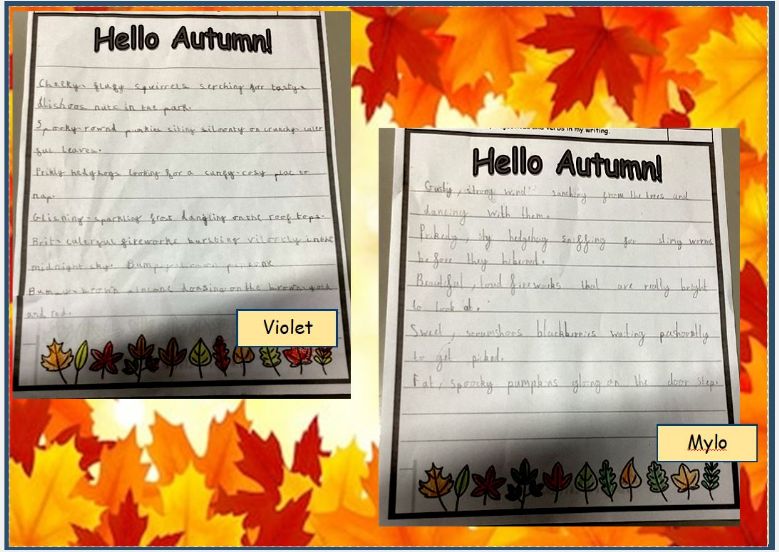 Hello Autumn!
Cheeky, flufy squirrels serching for tasty
dlishoos nuts in the park.
Spooky round punkins siting siloontly on crunchy
ful leaves.
Prickly hedghogs looking for a comfy cosy plac to
nap.
Glisning sparkling frost dangling on the roof tops.
Brit calerful fireworks bursting vilortly
midnight sky.
brown on the brown gold
and red.
Violet
and verbs in my writing.
Hello Autumn!
Gusty, strong wind from the trees and
dancing with them.
Prikcly, hedgehog sniffing for slimy worms
before they hibernet.
Beautiful, loud fireworks that are really bright
to look at.
Sweet, scrumshoos blackberries waiting pashontly
to get picked.
Fat, spoocky pumpkins on the door step.
Mylo